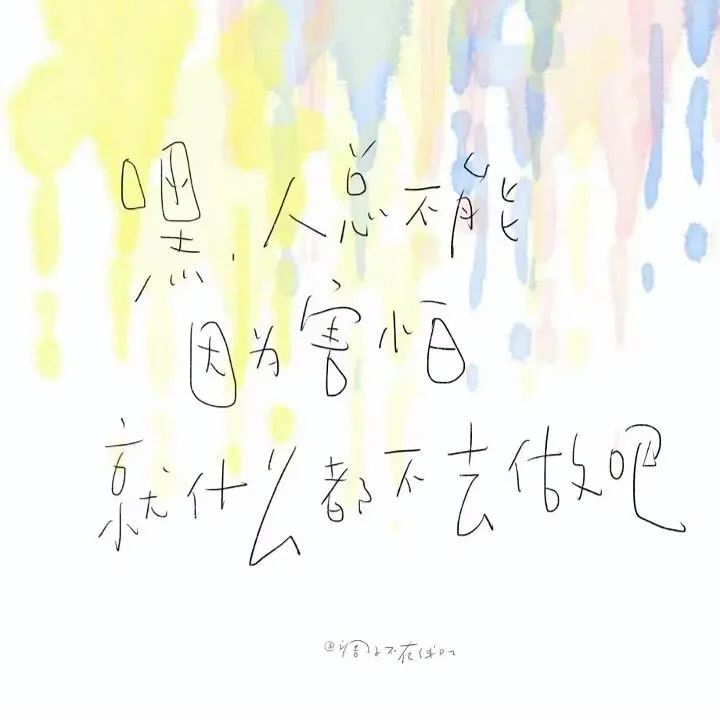 嘿,人总不能
因为害怕
就什么都不去做吧